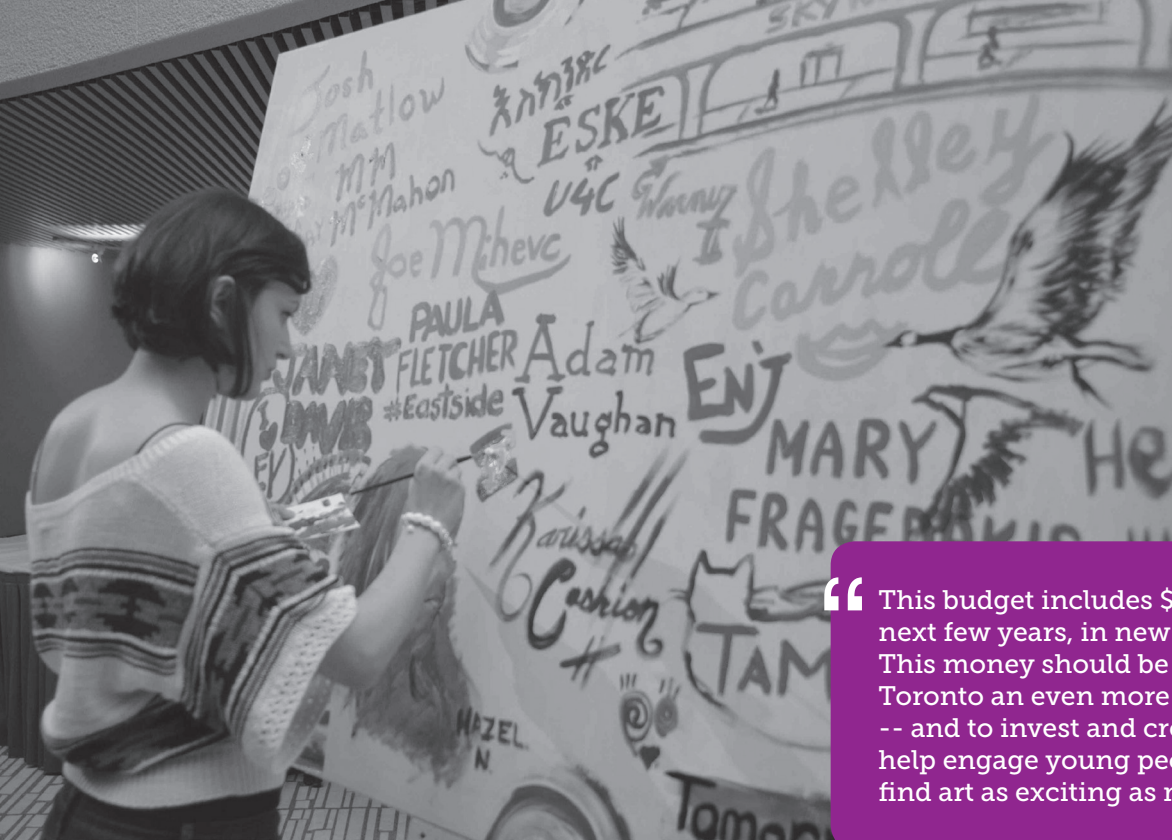 SKY
Josh
Matlow
MM
McMahon
Joe Mihevc
እስክንድር
ESKE
U4C
Shelley
Carroll
PAULA
FLETCHER
#Eastside
JANET
DAVIS
Adam
Vaughan
ENJ
MARY
FRAGEDAKIS
He
Karissa
Cashion
TAM
HAZEL
N.
“ This budget includes $
next few years, in new
This money should be
Toronto an even more
-- and to invest and cre
help engage young peo
find art as exciting as